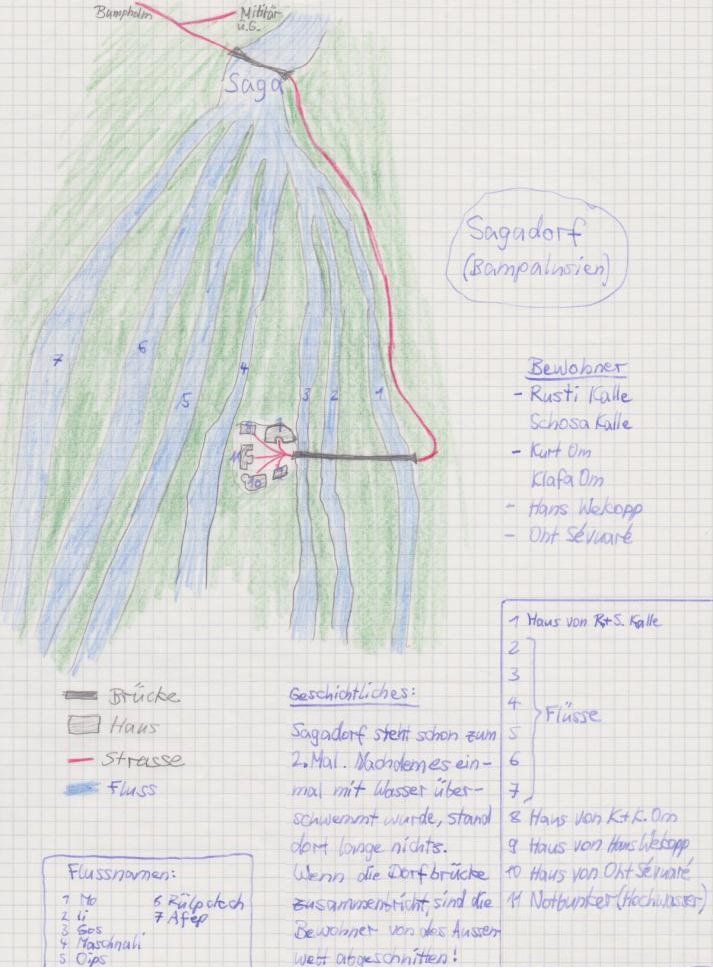 Bumpholm
Militär
u.G.
Saga
7
6
5
4
3
2
1
8
1
11
9
10
Sagadorf
(Bampalusien)
Bewohner
- Rusti Kalle
Schosa Kalle
- Kurt Om
Klafa Om
- Hans Wekopp
- Oht Sévuaré
Brücke
Haus
Strasse
Fluss
Flussnamen:
1 Mo
2 Li
3 Gos
4 Maschnali
5 Oips
6 Rülpdach
7 Afép
Geschichtliches:
Sagadorf steht schon zum
2. Mal. Nachdem es ein-
mal mit Wasser über-
schwemmt wurde, stand
dort lange nichts.
Wenn die Dorfbrücke
zusammenbricht, sind die
Bewohner von des Aussen
welt abgeschnitten!
1 Haus von R+S. Kalle
2
3
4
5
6
7
Flüsse
8 Haus von K+K. Om
9 Haus von Hans Wekopp
10 Haus von Oht Sévuaré
11 Notbunker (Hochwasser)